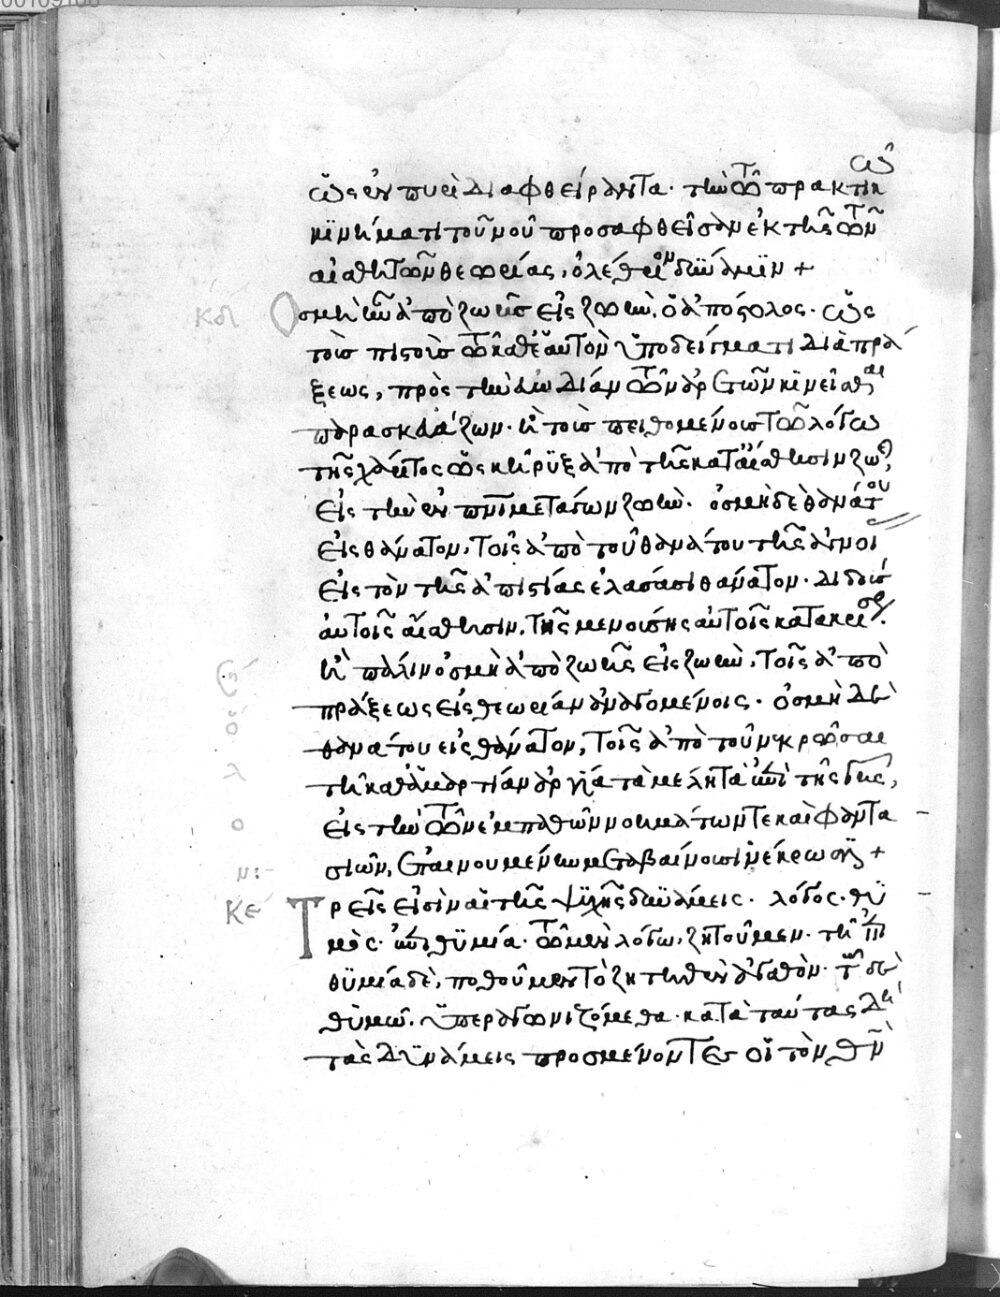 ὡς ἐν πυρὶ διαφθείραντα· τὴν τῷ πρακτικῷ
κινήματι τοῦ νοῦ προσαφθεῖσαν ἐκ τῆς τῶν
αἰσθητῶν θεωρίας, ὀλέθριον δύναμιν +
κδ Ὀσμὴν ἀπὸ ζωῆς εἰς ζωὴν, ὁ ἀπόστολος· ὡς
τοῖς πιστοῖς τῷ καθ' ἑαυτὸν ὑποδείγματι διὰ πρά
ξεως, πρὸς τὴν εὐωδίαν τῶν ἀρετῶν κινεῖσθαι
παρασκευάζων· ἢ τοῖς πειθομένοις τῷ λόγῳ
τῆς χάριτος ὡς κήρυξ ἀπὸ τῆς κατ' αἴσθησιν ζωῆς,
εἰς τὴν ἐν πνι μετάγων ζωὴν· ὀσμὴ δὲ θανάτου
εἰς θάνατον, τοῖς ἀπὸ τοῦ θανάτου τῆς ἀγνοί
εἰς τὸν τῆς ἀπιστίας ἐλάσασι θάνατον· διδοὺς
αὐτοῖς αἴσθησιν, τῆς μενούσης αὐτοῖς κατακρίσεως·
ἢ πάλιν ὀσμὴ ἀπὸ ζωῆς εἰς ζωὴν, τοῖς ἀπὸ
πράξεως εἰς θεωρίαν ἀναγομένοις· ὀσμὴ δὲ
θανάτου εἰς θάνατον, τοῖς ἀπὸ τοῦ νεκρῶσαι
τῇ καθ' ἁμαρτίαν ἀργίᾳ τὰ μέλη τὰ ἐπὶ τῆς γῆς,
εἰς τὴν τῶν ἐμπαθῶν νοημάτων τε καὶ φαντα
σιῶν, ἐπαινουμένην μεταβαίνουσι νέκρωσιν +
κε Τρεῖς εἰσὶν αἱ τῆς ψυχῆς δυνάμεις· λόγος· θυ
μὸς· ἐπιθυμία· τῷ μὲν λόγῳ, ζητοῦμεν· τῇ ἐπι
θυμίᾳ δὲ, ποθοῦμεν τὸ ζητηθὲν ἀγαθὸν· τῷ δὲ
θυμῷ, ὑπεραγωνιζόμεθα· κατὰ ταύτας δὴ
τὰς δυνάμεις προσμένοντες οἱ τὸν θν